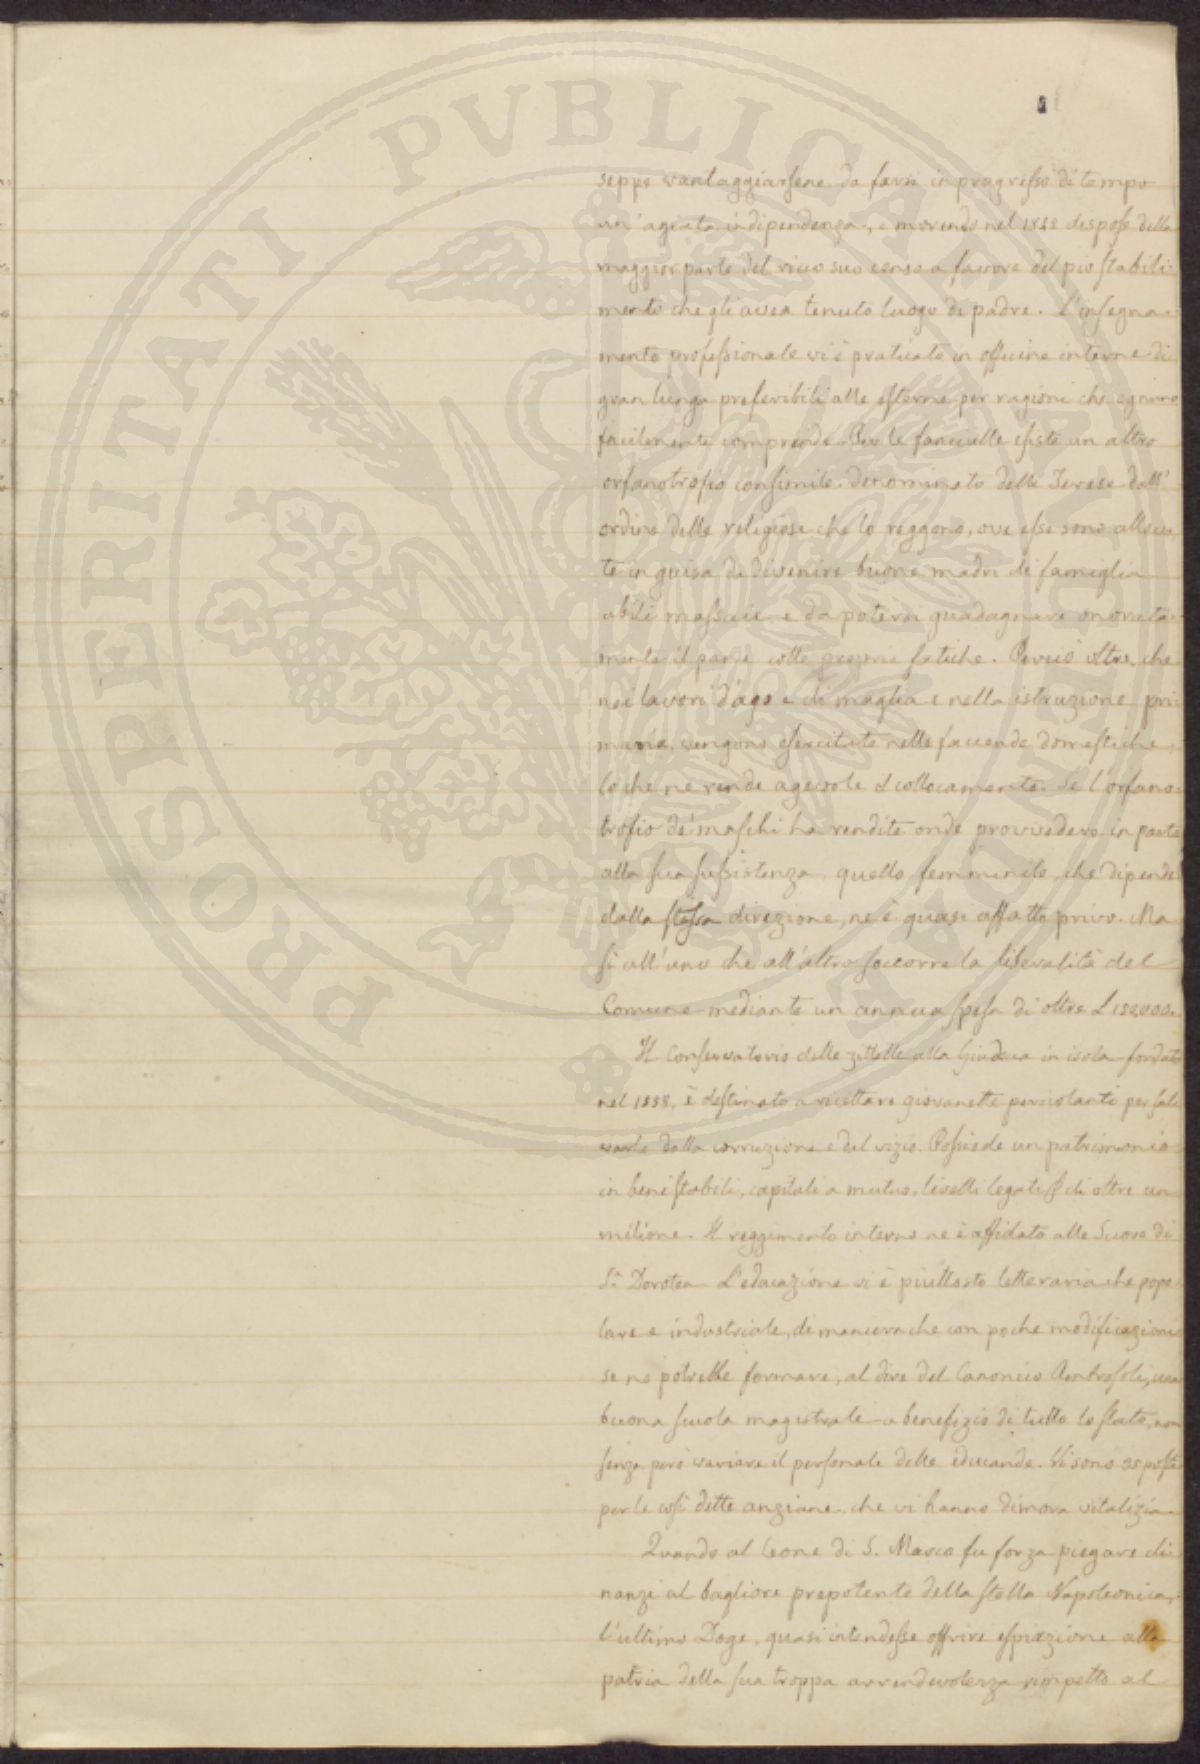 PROSPERITATI PVBLICAE AVGENDAE
seppe vantaggiarsene da farsi in progresso di tempo
un'agiata indipendenza, e morendo nel 1858 dispose della
maggior parte del vicus suo censo a favore del pio stabili-
mento che gli avea tenuto luogo di padre. L'insegna-
mento professionale vi è praticato in officine interne di
gran lunga preferibili alle esterne per ragioni che ognuno
facilmente comprende. Per le fanciulle esiste un altro
orfanotrofio consimile denominato delle Terese dall'
ordine delle religiose che lo reggono, ove esse sono alleva-
te in guisa da divenire buone madri di famiglia
abili massaie, e da potersi guadagnare onorata-
mente il pane colle proprie fatiche. Perciò oltre che
nei lavori d'ago e di maglia e nella istruzione pri-
maria, vengono esercitate nelle faccende domestiche,
lo che ne rende agevole il collocamento. Se l'orfano-
trofio de' maschi ha rendite onde provvedere in parte
alla sua sussistenza, quello femminile, che dipende
dalla stessa direzione, ne è quasi affatto privo. Ma
sì all'uno che all'altro soccorre la liberalità del
Comune mediante un annua spesa di oltre L 150,000.
Il Conservatorio delle zittelle alla Giudeca in isola fondato
nel 1558, è destinato a ricettare giovanette pericolanti per sal-
varle dalla corruzione e dal vizio. Possiede un patrimonio
in beni stabili, capitali a mutuo, livelli legati di oltre un
milione. Il reggimento interno ne è affidato alle Suore di
S.a Dorotea. L'educazione vi è piuttosto letteraria che popo-
lare e industriale, di maniera che con poche modificazioni
se ne potrebbe formare, al dire del Canonico Ambrosoli, una
buona scuola magistrale a benefizio di tutto lo stato, non
senza però variare il personale delle educande. Vi sono 25 posti
per le così dette anziane, che vi hanno dimora vitalizia.
Quando al Leone di S. Marco fu forza piegare di-
nanzi al bagliore prepotente della stella Napoleonica,
l'ultimo Doge, quasi intendesse offrire espiazione alla
patria della sua troppa arrendevolezza rimpetto al